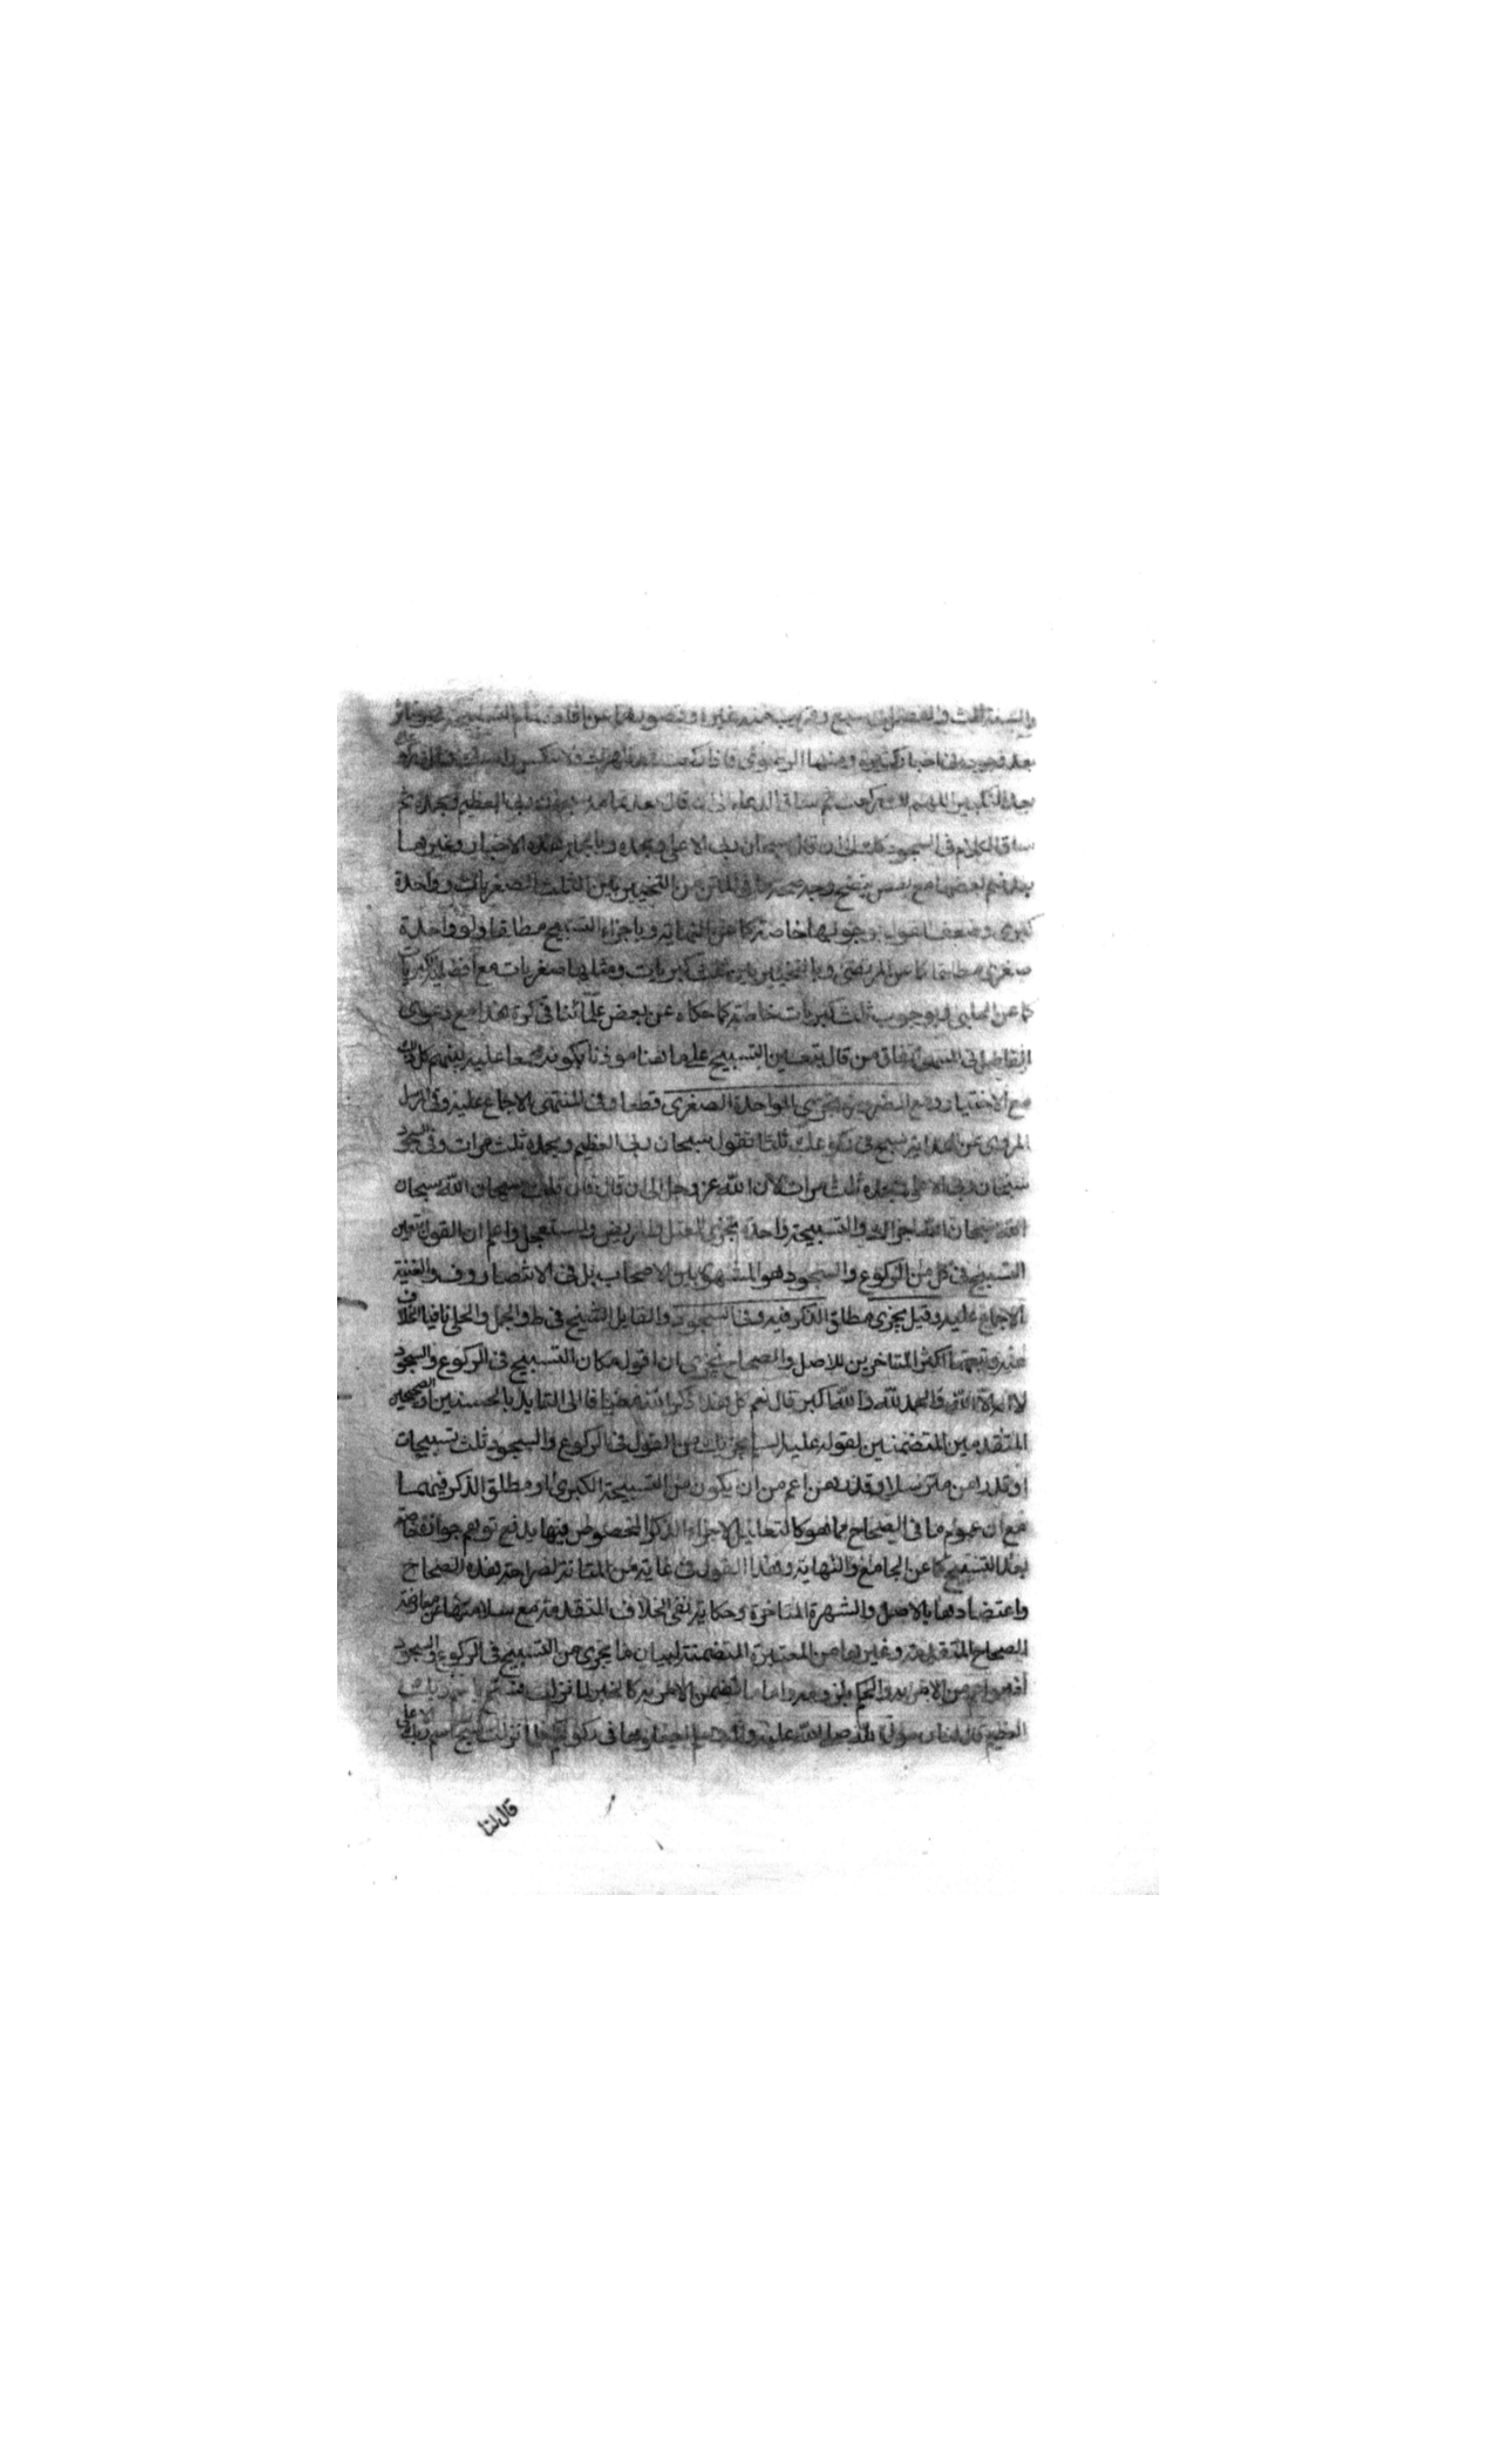 والسنة الثلث والفضل في سبع وقريب منه غيره وقصورهما عن افادة تمام التسبيحة غير ضائر
بعد وجوده في اخبار كثيرة ومنها الرضوي فاذا ركعت
ثم ساق الدعاء الى ان قال سبحان ربي العظيم وبحمده ثم
ساق الكلام في السجود كذلك الى ان قال سبحان ربي الاعلى وبحمده وبالجملة هذه الاخبار وغيرها
بعد ضم بعضها مع بعض يتضح وجه صحة ما في المتن من التخيير بين الثلث الصغريات وواحدة
كبرى وضعف القول بوجوبها خاصة كما عن النهاية وباجزاء التسبيح مطلقا ولو واحدة
صغرى مطلقا كما عن المرتضى وبالتخيير بين ثلث كبريات ومثلها صغريات مع افضلية الكبريات
كما عن الحلبي وبوجوب ثلث كبريات خاصة كما حكاه عن بعض علمائنا في كرة هذا مع دعوى
الفاضل في المنتهى اتفاق من قال بتعيين التسبيح على ما هنا موذنا بكونه مجمعا عليه بينهم كل ذلك
مع الاختيار ومع الضرورة تجزي الواحدة الصغرى قطعا وفي المنتهى الاجماع عليه وفي المرسل
المروي عن الهداية سبح في ركوعك ثلثا تقول سبحان ربي العظيم وبحمده ثلث مرات وفي السجود
سبحان ربي الاعلى وبحمده ثلث مرات لان الله عز وجل الى ان قال فان قلت سبحان الله سبحان
الله سبحان الله اجزاك والتسبيحة واحدة تجزي للمعتل والمريض والمستعجل واعلم ان القول بتعين
التسبيح في كل من الركوع والسجود هو المشهور بين الاصحاب بل في الانتصار وف والغنية
الاجماع عليه وقيل يجزي مطلق الذكر فيه وفي السجود والقايل الشيخ في ط والجمل والحلي نافيا الخلاف
عنه وتبعهما اكثر المتاخرين للاصل والصحاح يجزي ان اقول مكان التسبيح في الركوع والسجود
لا اله الا الله والحمد لله والله اكبر قال نعم كل هذا ذكر الله مضافا الى التايد بالحسنين او الصحيحين
المتقدمين المتضمنين لقوله عليه السلام يجزيك من القول في الركوع والسجود ثلث تسبيحات
او قدرهن مترسلا وقدرهن اعم من ان يكون من التسبيحة الكبرى او مطلق الذكر فيهما
مع ان عموم ما في الصحاح مما هو كالتعليل لاجزاء الذكر المخصوص فيها يدفع توهم جوازه خاصة
بعد التسبيح كما عن الجامع والنهاية وهذا القول في غاية من المتانة لصراحة هذه الصحاح
واعتضادها بالاصل والشهرة المتاخرة وحكاية نفي الخلاف المتقدمة مع سلامتها عن معارضة
الصحاح المتقدمة وغيرها من المعتبرة المتضمنة لبيان ما يجزي من التسبيح في الركوع والسجود
اذ هو اعم من الامر به والحكم بلزومه واما ما تضمن الامر به كالخبر لما نزلت فسبح باسم ربك
العظيم قال لنا رسول الله صلى الله عليه واله اجعلوها في ركوعكم فلما نزلت سبح اسم ربك الاعلى
قال لنا